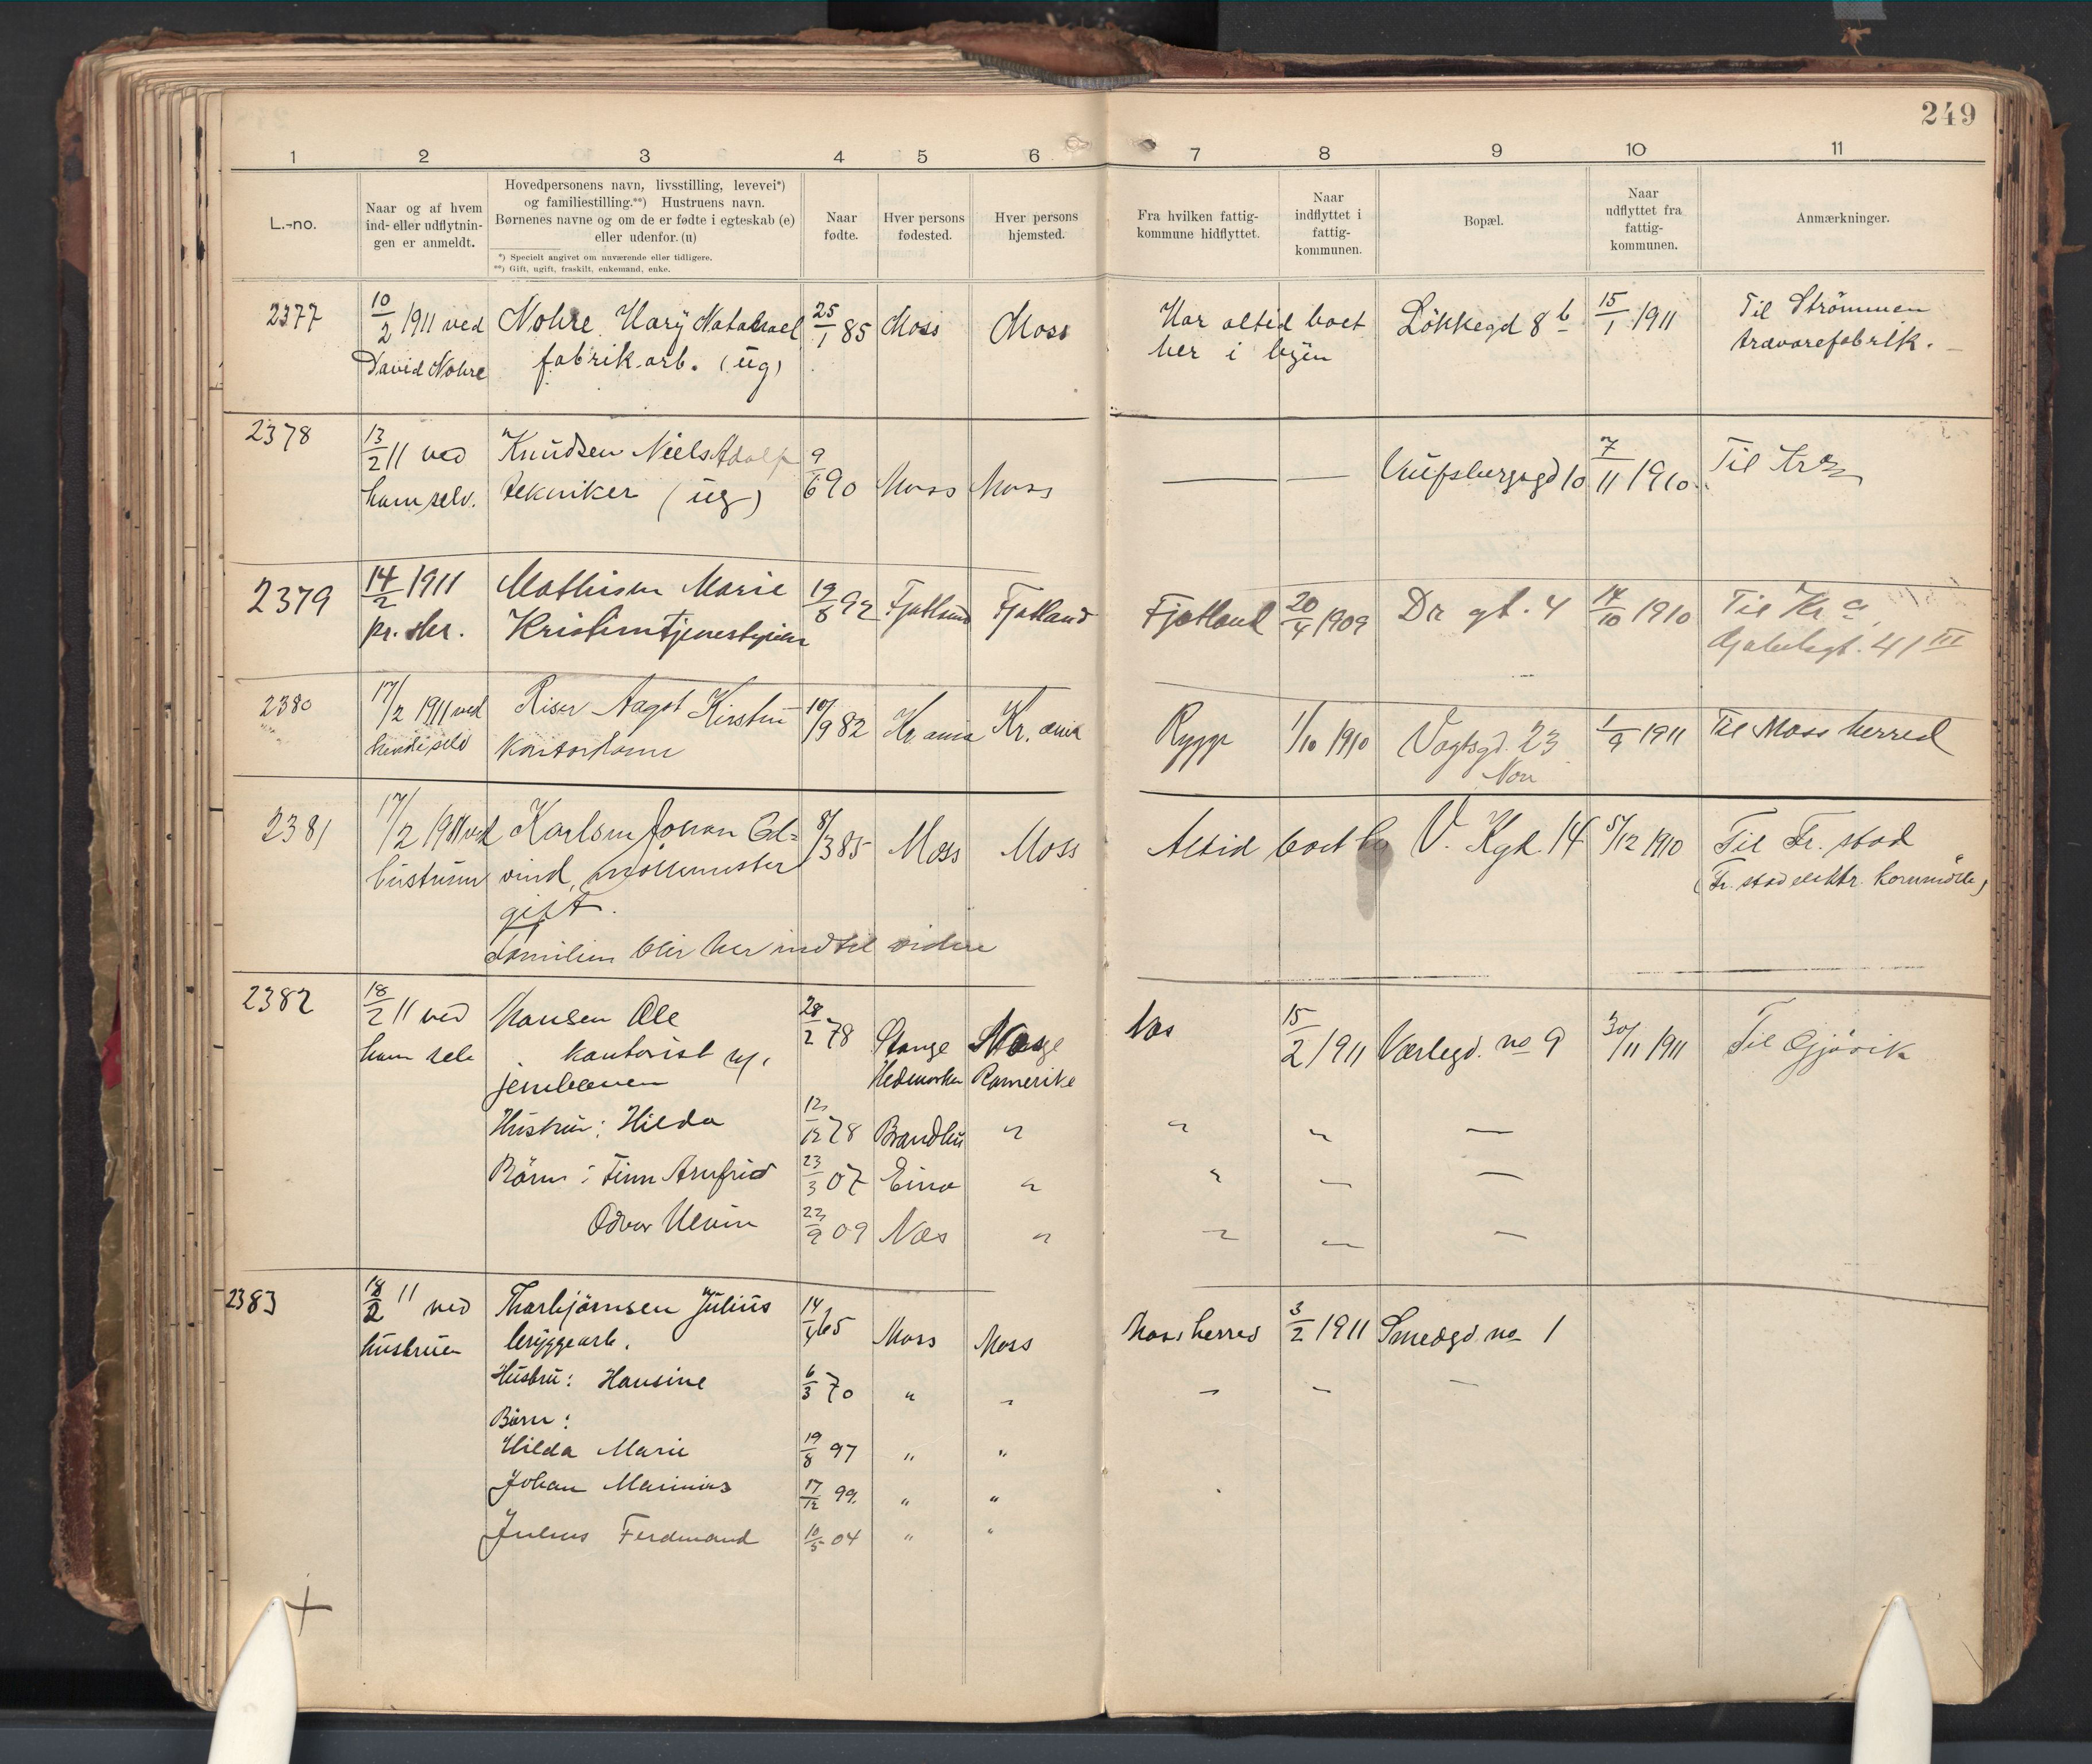 249
1 2 3 4 5 6 7 8 9 10 11
L.-no.
Naar og af hvem
ind- eller udflytnin-
gen er anmeldt.
Hovedpersonens navn, livsstilling, levevei*)
og familiestilling.**) Hustruens navn.
Børnenes navne og om de er fødte i egteskab (e)
eller udenfor. (u)
*) Specielt angivet om nuværende eller tidligere.
**) Gift, ugift, fraskilt, enkemand, enke.
Naar
fødte.
Hver persons
fødested.
Hver persons
hjemsted.
Fra hvilken fattig-
kommune hidflyttet.
Naar
indflyttet i
fattig-
kommunen.
Bopæl.
Naar
udflyttet fra
fattig-
kommunen.
Anmærkninger.
2377 10/2 1911 ved Nohre Harÿ Natanael 25/1 85 Moss Moss Har altid boet Løkkegd 8 b 15/1 1911 Til Strømmen
David Nohre fabrik.arb. (ug) her i byen trævarefabrik.
2378 13/2 11 ved Knudsen Niels Adolf 9/6 90 Moss Moss — — 10 7/11 1910 Til Kra
ham selv. tekniker (ug)
2379 14/2 1911 Mathisen Marie 19/8 92 Fjotland Fjotland Fjotland 20/4 1909 Dr gt. 4 14/10 1910 Til Kr a
pr. skr. Kristine tjenestepige 41 III
2380 17/2 1911 ved Riser Aagot Kirstin 10/9 82 Kr. ania Kr. ania Rygge 1/10 1910 Vogtsgd. 23 1/9 1911 Til Moss herred
hende selv Kontordame
2381 17/2 1911 ved Karlsen Johan Ed= 8/3 85 Moss Moss Altid boet her V. Kgt. 14 5/12 1910 Til Fr. stad
hustruen vind, møllemester (Fr. stad elektr. Kornmølle)
gift.
Familien blir her indtil videre
2382 18/2 11 ved Hansen Ole 28/2 78 Stange Næs 15/2 1911 Værlegd. no 9 30/11 1911 Til Gjøvik
ham selv kontorist v.
jernbanen Hedmarken Romerike
Hustru: Hilda 12/12 78 Brandbu " " " —
Børn: Finn Arnfrid 23/3 07 Eina " " — —
Odvar 22/9 09 Næs " " — —
2383 18/2 11 ved Thorbjørnsen Julius 14/4 65 Moss Moss Moss herred 3/2 1911 Smedgd. no 1
hustruen bryggearb.
Hustru: Hansine 6/3 70 " " — — —
Børn:
Hilda Marie 19/8 97 " "
Johan Marinius 17/12 99. " "
Julius Ferdinand 10/5 04 " "